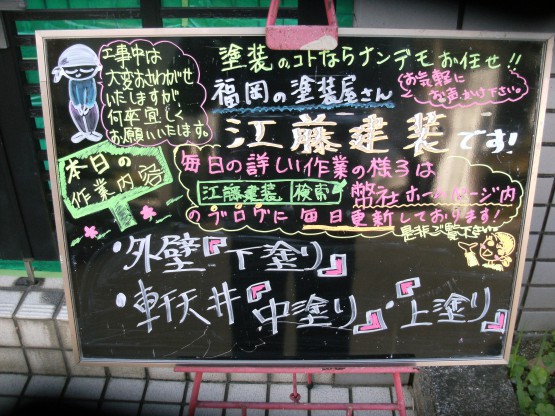 工事中は
大変おさわがせ
いたしますが
何卒宜しく
お願いいたします。
塗装のコトならナンデモお任せ!!
福岡の塗装屋さん
お気軽に
お声かけ下さい。
江藤建装です!
本日の
作業内容
毎日の詳しい作業の様子は
江藤建装 検索 弊社ホームページ内
のブログに毎日更新しております!
是非ご覧下さい
・外壁『下塗り』
・軒天井『中塗り』・『上塗り』